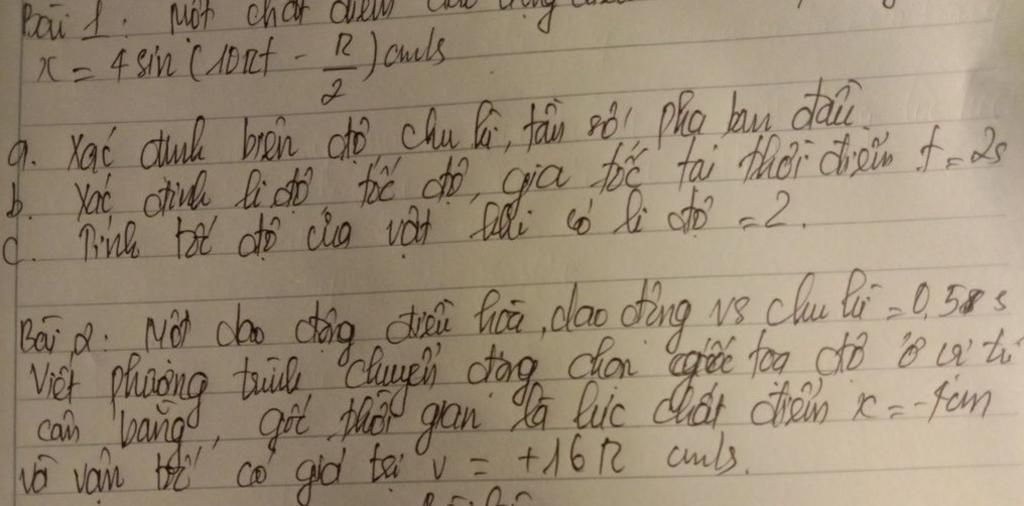 Bài 1: Một chất điểm dao động
x = 4 sin (10πt - π/2) cm/s
a. Xác định biên độ chu kì, tần số, pha ban đầu
b. Xác định li độ, tốc độ, gia tốc tại thời điểm t = 2s
c. Tính tốc độ của vật khi có li độ = 2.
Bài 2: Một dao động điều hoà, dao động vs chu kì = 0,5 s
Viết phương trình chuyển động chọn gốc toạ độ ở vị trí
cân bằng, gốc thời gian là lúc chất điểm x = -4cm
và vận tốc có giá trị v = +16π cm/s.